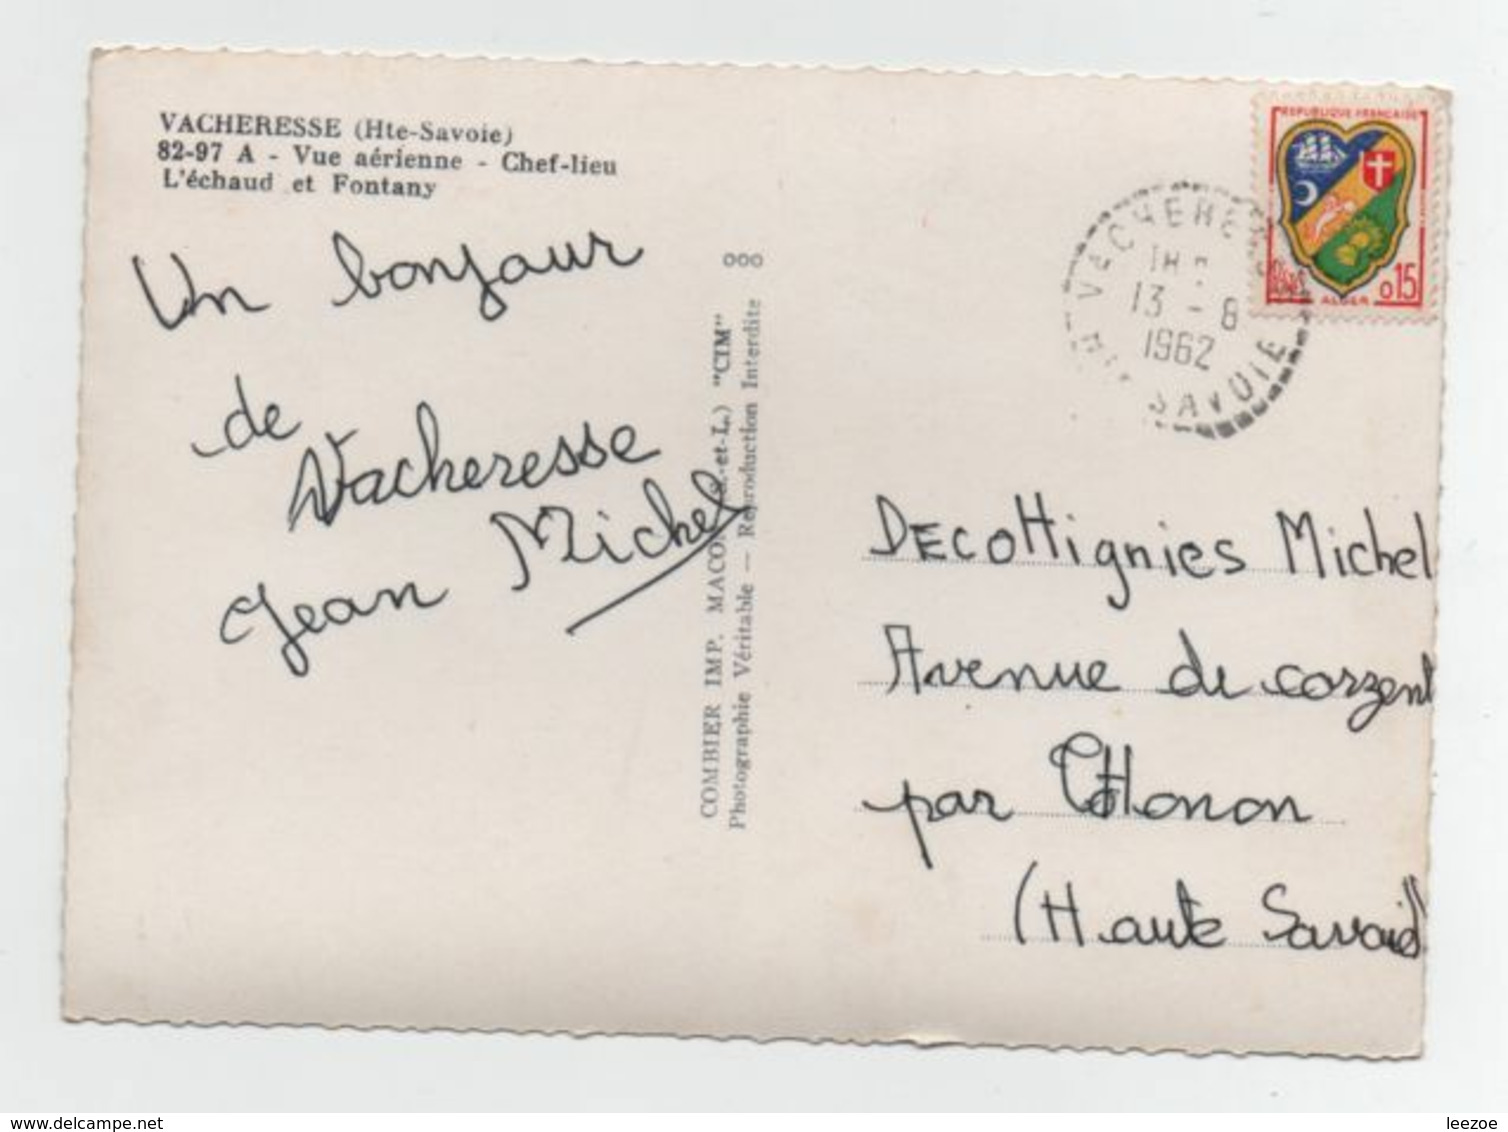 VACHERESSE (Hte-Savoie)
82-97 A - Vue aérienne - Chef-lieu
L'échaud et Fontany
Un bonjour
de
Vacheresse
Jean Michel
ooo
COMBIER IMP. MACON (S.-et-L.) "CIM"
Photographie Véritable — Reproduction Interdite
REPUBLIQUE FRANÇAISE
ALGER
0.15
VACHERE
18H
13 - 8
1962
SAVOIE
DECOTTignies Michel
Avenue de corzent
par THonon
(Haute Savoie)
delcampe.net
leezoe